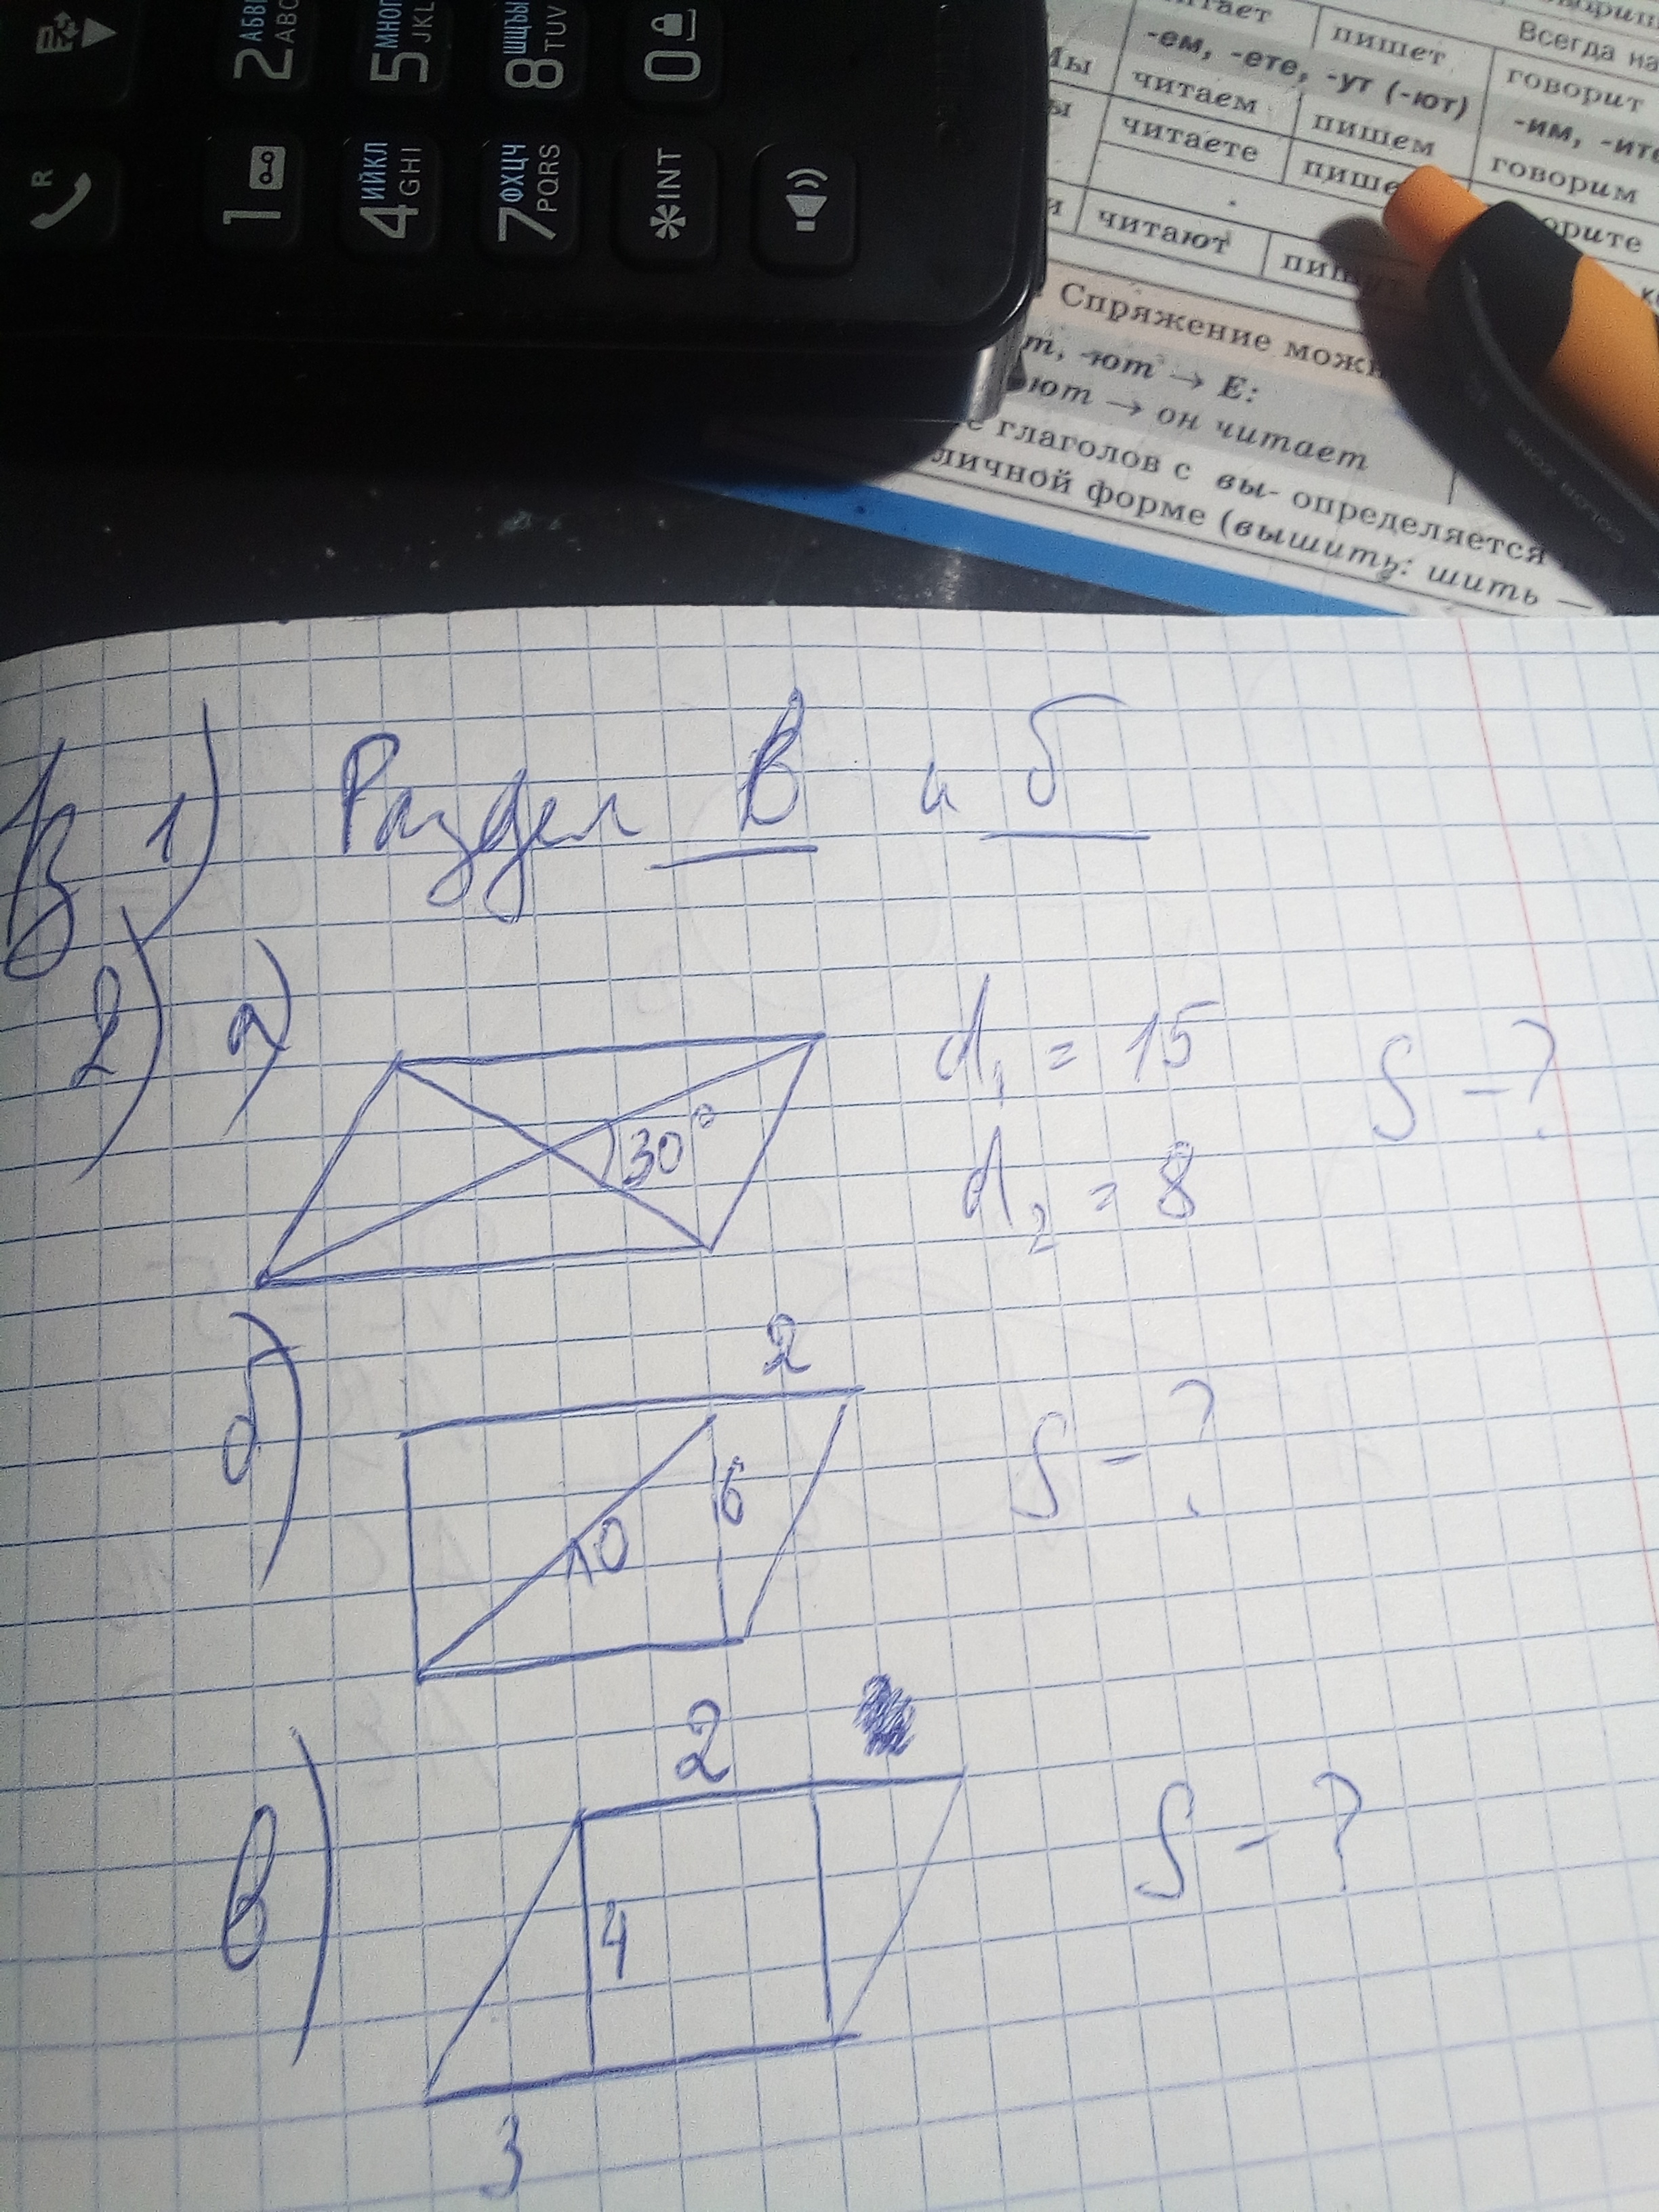 2 АБВГ ABC
5 МНОП JKL
8 ШЩЪЫ TUV
0
R
1
4 ИЙКЛ GHI
7 ФХЦЧ PQRS
*INT
читает пишет
Всегда на
-ем, -ете, -ут (-ют)
говорит
Мы читаем пишем
-им, -ите
читаете
говорим
читают
Спряжение можн
т, -ют → Е:
ют → он читает
глаголов с вы- определяется
личной форме (вышить: шить —
1) Раздел В и б
2) а) 30° d₁ = 15 S - ?
d₂ = 8
б) 2
6 S - ?
10
в) 2
4 S - ?
3